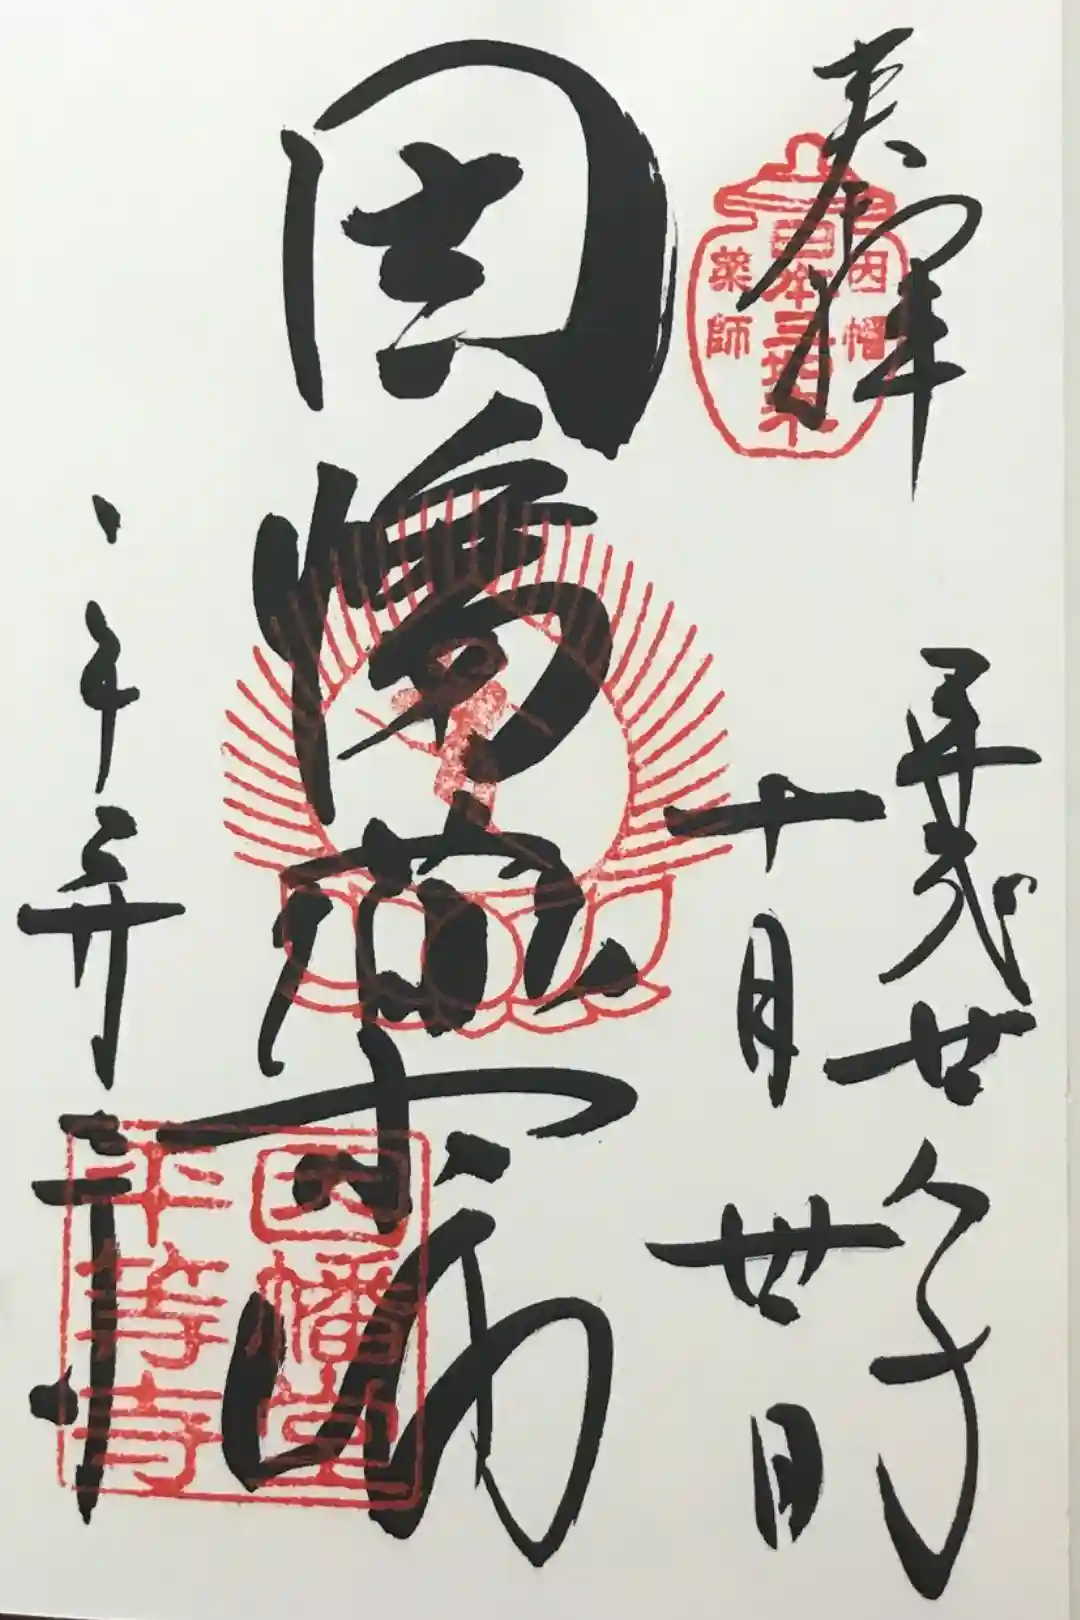 奉拝
因幡
日本三如来
薬師
平成廿
十月丗日
因幡薬師
平等寺
因幡堂
平等寺